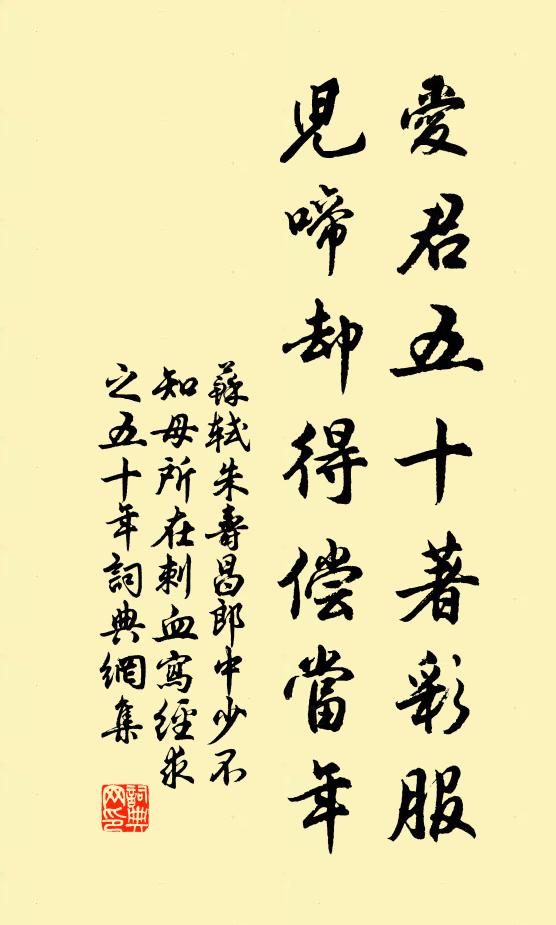 愛君五十著彩服
兒啼却得偿當年
蘇軾朱壽昌郎中少不
知母所在刺血寫經求
之五十年詞典網集
詞典网印